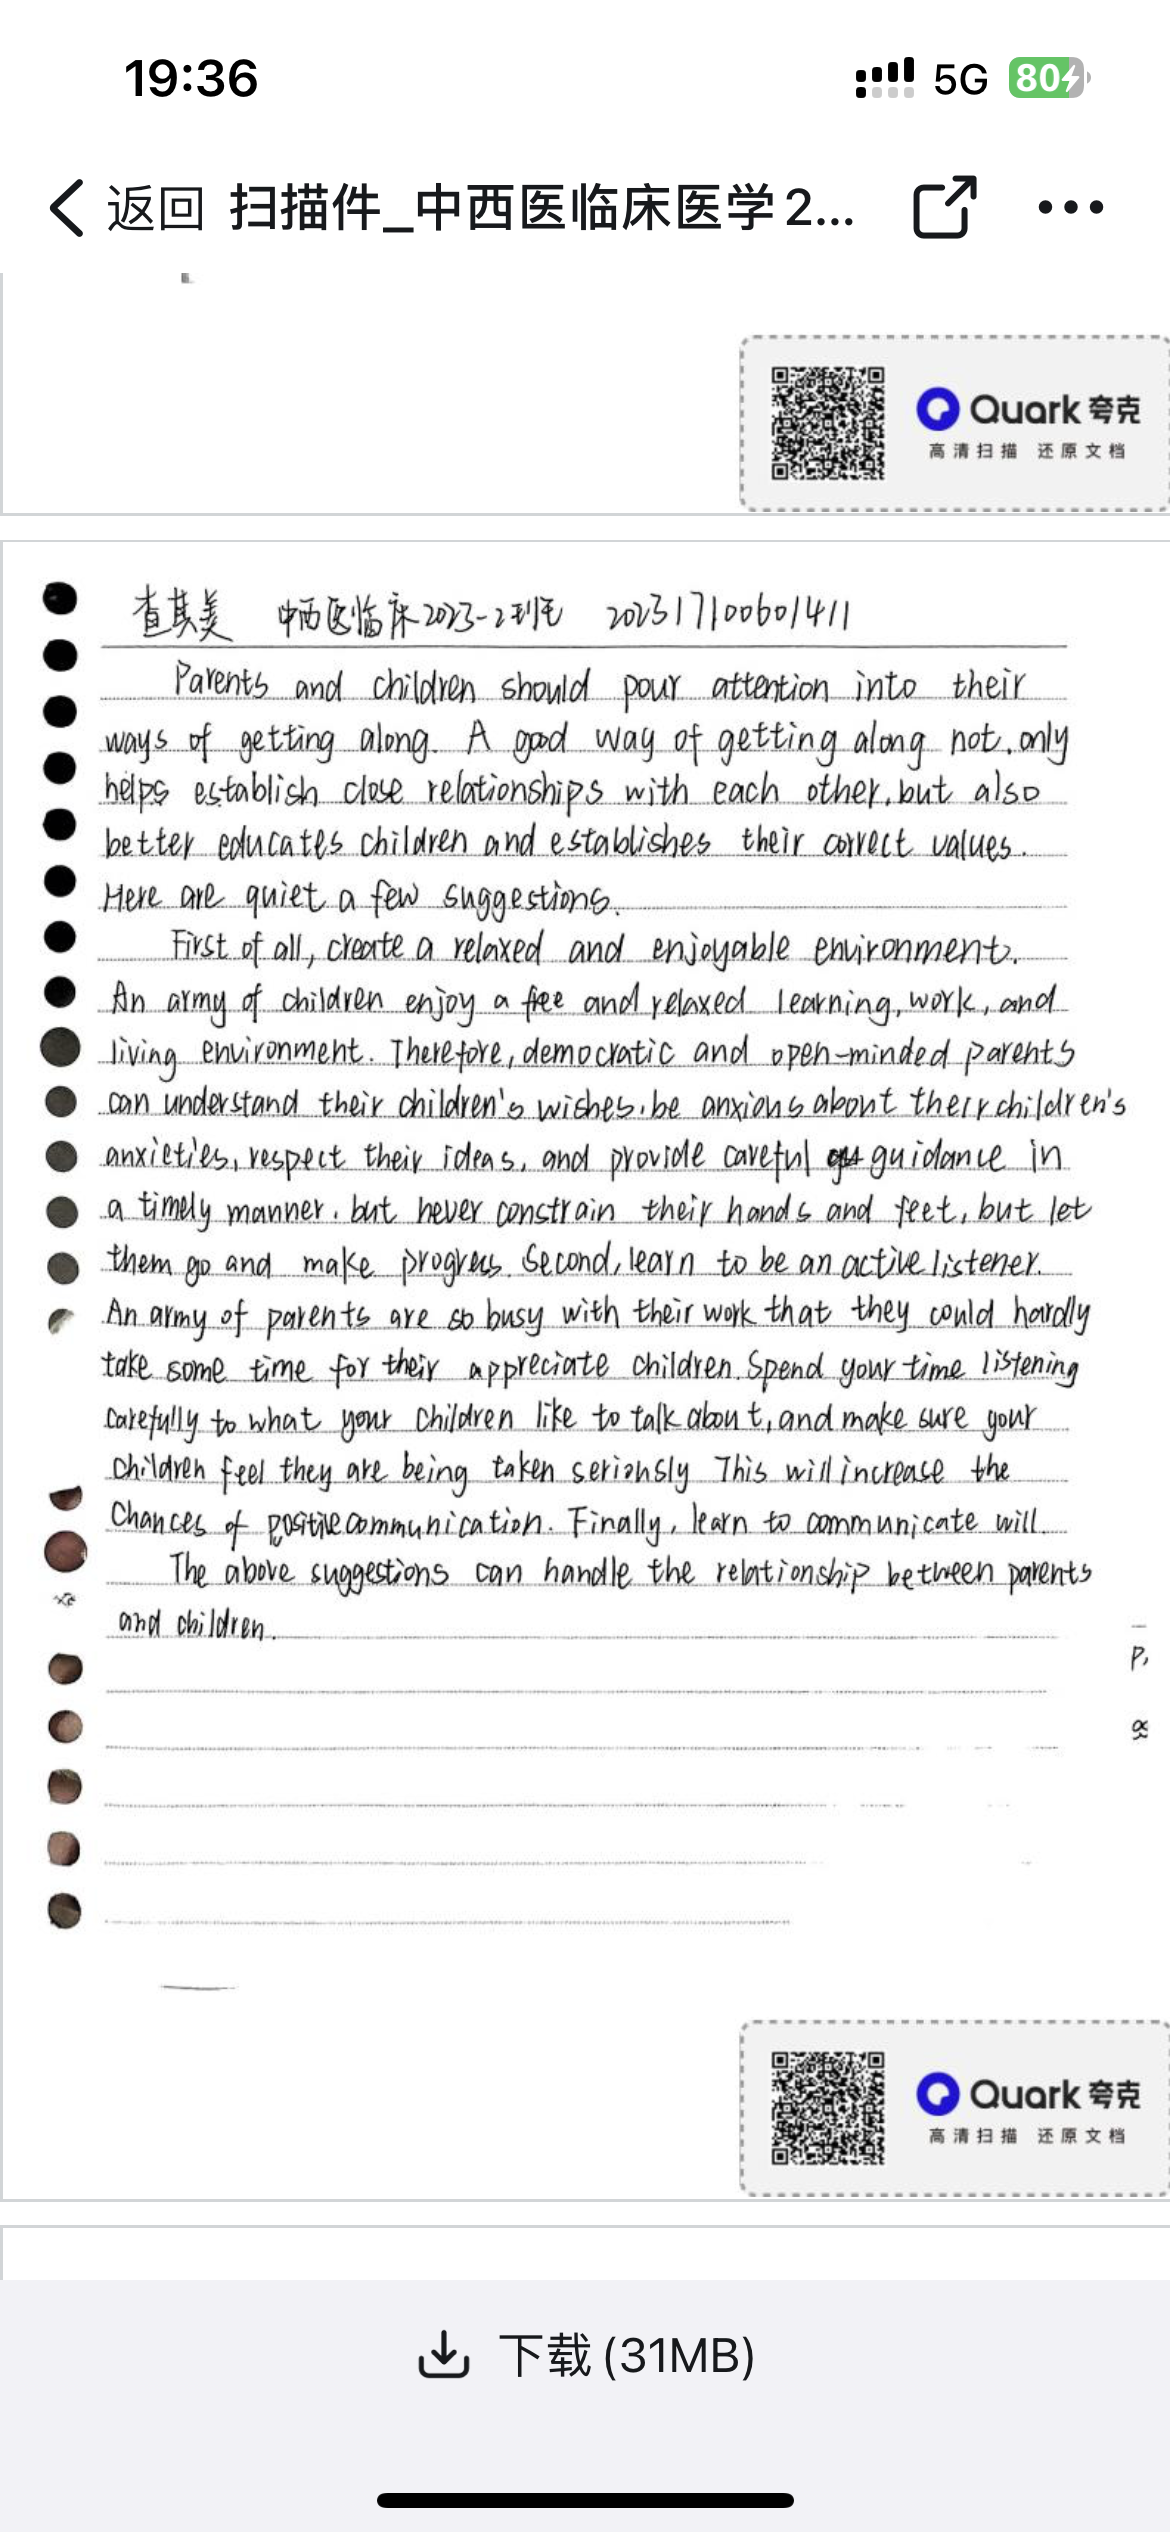 19:36
5G 80
返回 扫描件_中西医临床医学2...
Quark 夸克
高清扫描 还原文档
查其美 中西医临床2023-2班 202317100601411
Parents and children should pour attention into their
ways of getting along. A good way of getting along not only
helps establish close relationships with each other, but also
better educates children and establishes their correct values.
Here are quiet a few suggestions.
First of all, create a relaxed and enjoyable environment.
An army of children enjoy a free and relaxed learning, work, and
living environment. Therefore, democratic and open-minded parents
can understand their children's wishes, be anxious about their children's
anxieties, respect their ideas, and provide careful guidance in
a timely manner, but never constrain their hands and feet, but let
them go and make progress. Second, learn to be an active listener.
An army of parents are so busy with their work that they could hardly
take some time for their appreciate children. Spend your time listening
carefully to what your children like to talk about, and make sure your
children feel they are being taken seriously This will increase the
Chances of positive communication. Finally, learn to communicate will.
The above suggestions can handle the relationship between parents
and children.
P,
Quark 夸克
高清扫描 还原文档
下载 (31MB)